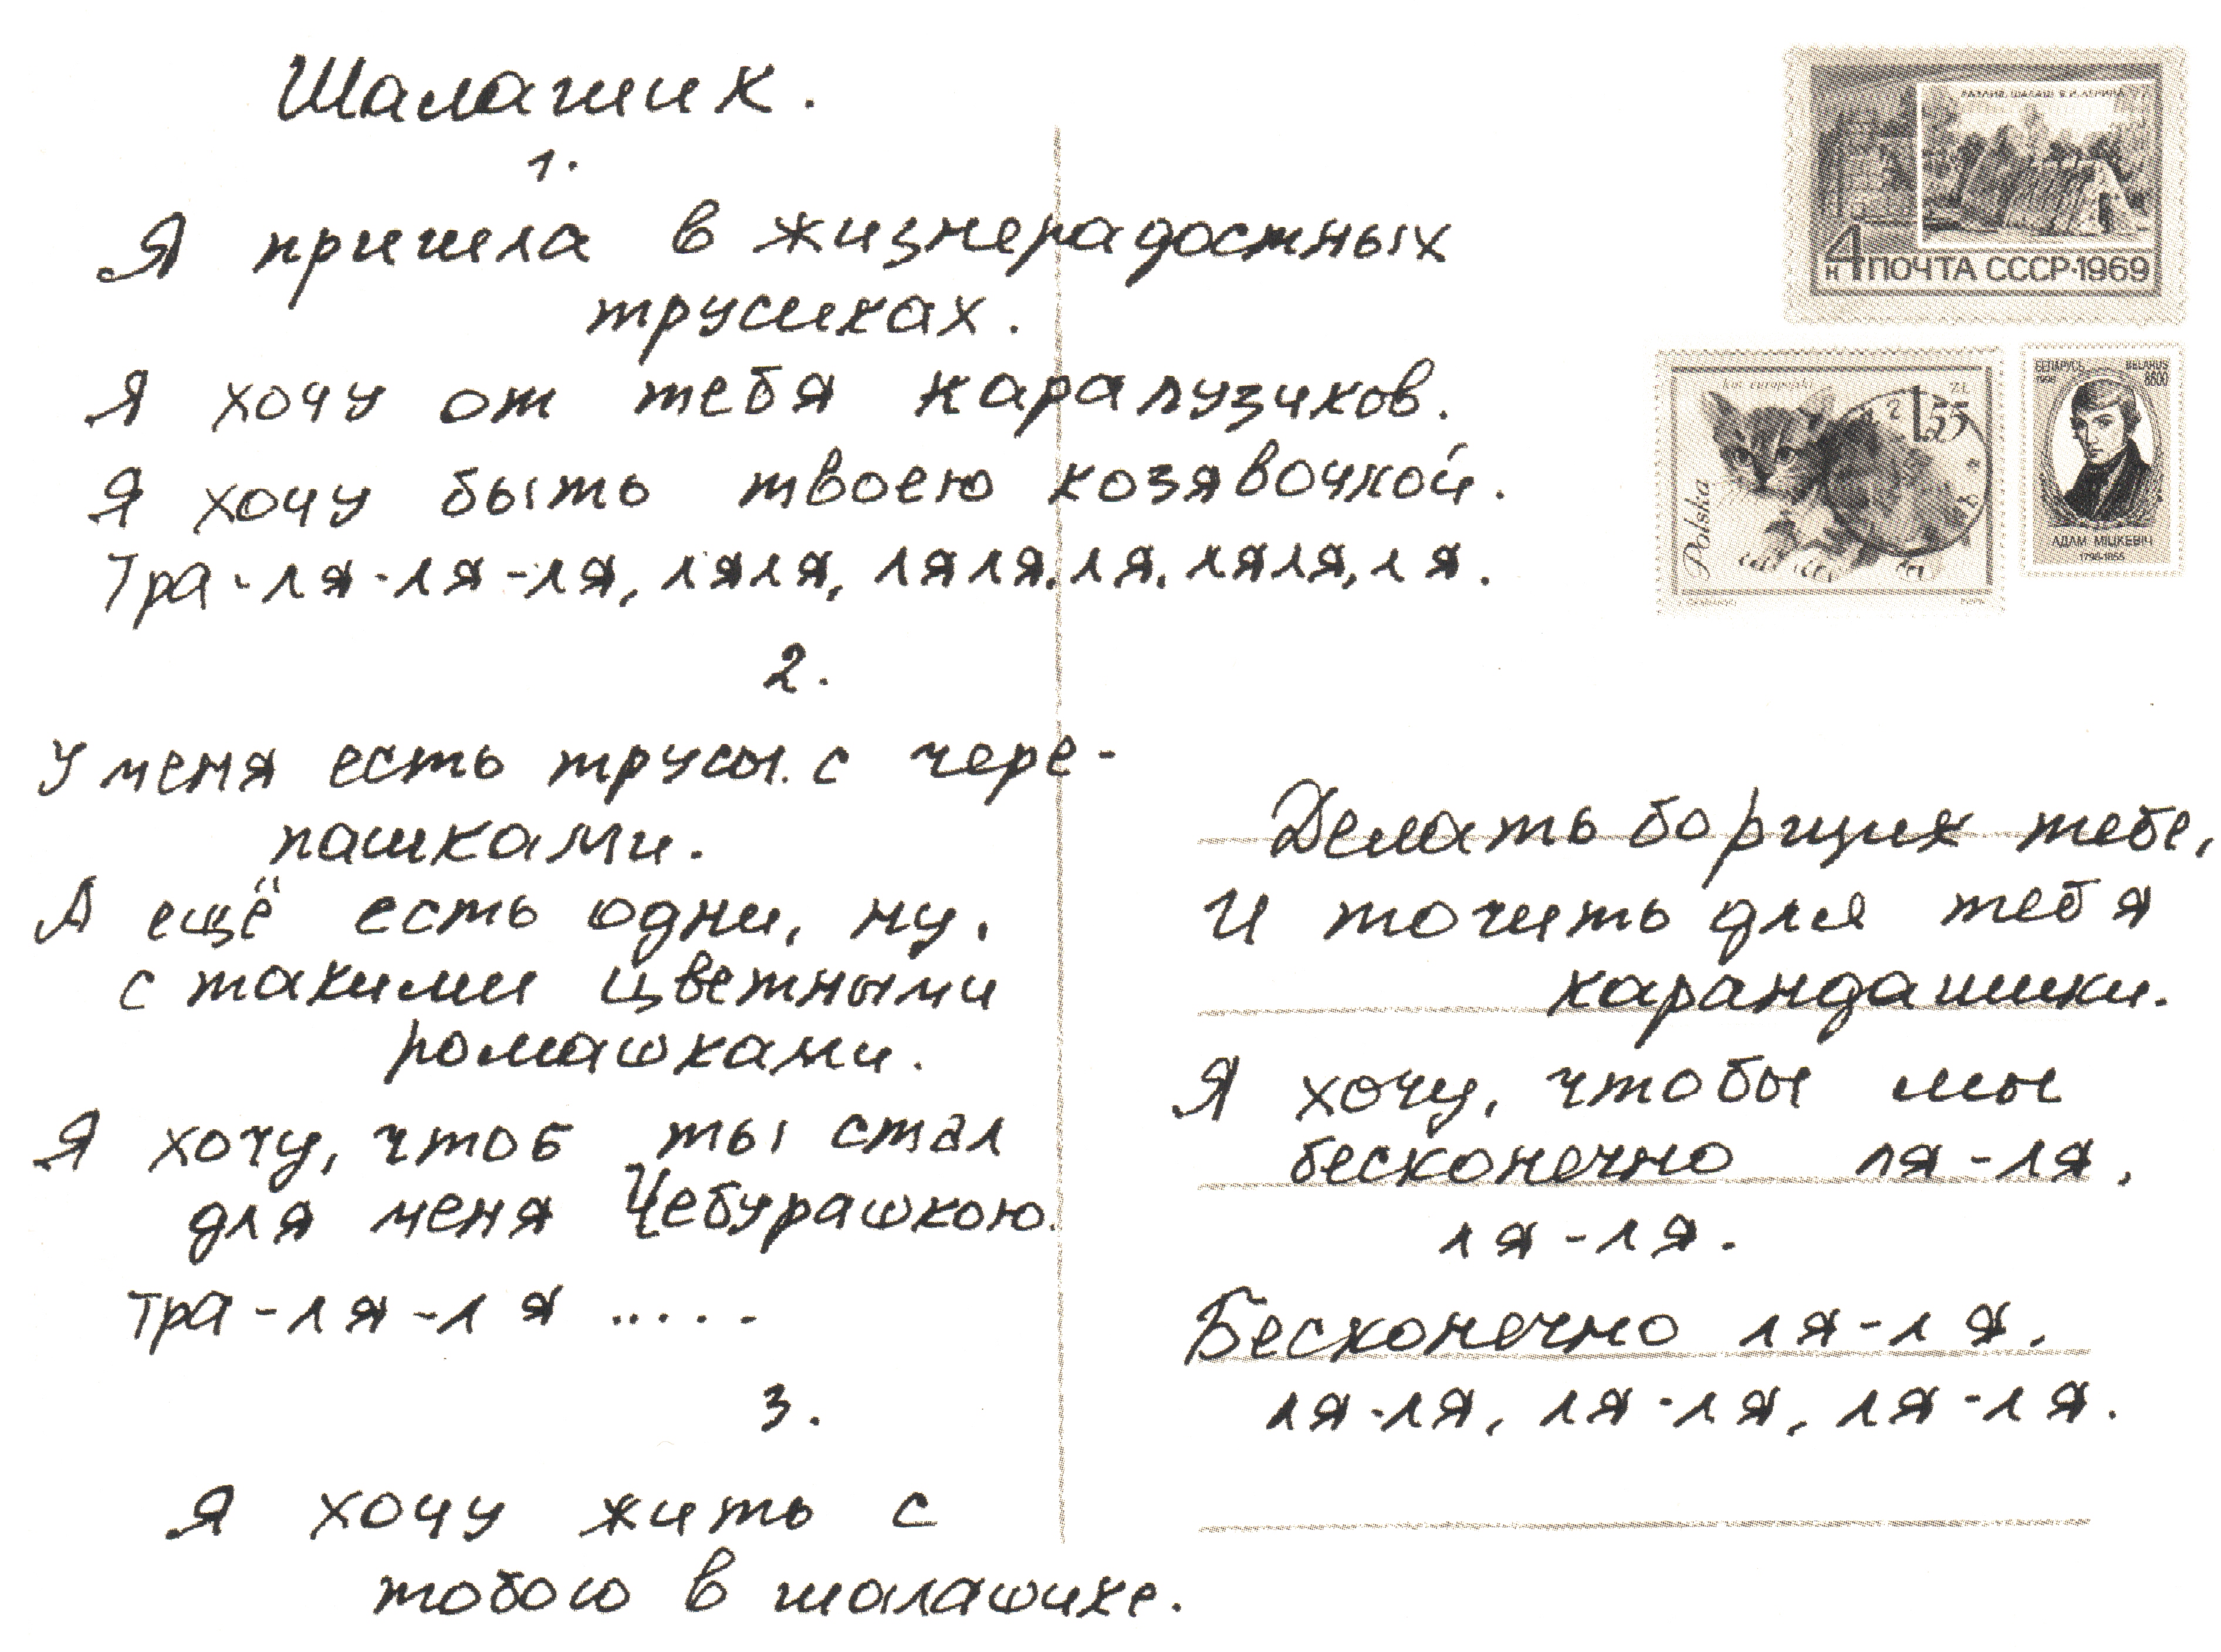 Шалашик.
1.
Я пришла в жизнерадостных
трусиках.
Я хочу от тебя карапузиков.
Я хочу быть твоею козявочкой.
Тра-ля-ля-ля, ляля, ляля, ля, ляля, ля.
2.
У меня есть трусы с чере-
пашками.
А ещё есть одни, ну,
с такими цветными
ромашками.
Я хочу, чтоб ты стал
для меня Чебурашкою.
Тра-ля-ля .....
3.
Я хочу жить с
тобою в шалашике.
Делать борщик тебе,
И точить для тебя
карандашики.
Я хочу, чтобы мы
бесконечно ля-ля,
ля-ля.
Бесконечно ля-ля,
ля-ля, ля-ля, ля-ля.
РАЗЛИВ. ШАЛАШ В.И.ЛЕНИНА
4 к ПОЧТА СССР·1969
kot europejski
ZŁ
1,55
Polska
БЕЛАРУСЬ BELARUS
1998 8600
АДАМ МІЦКЕВІЧ
1798-1855